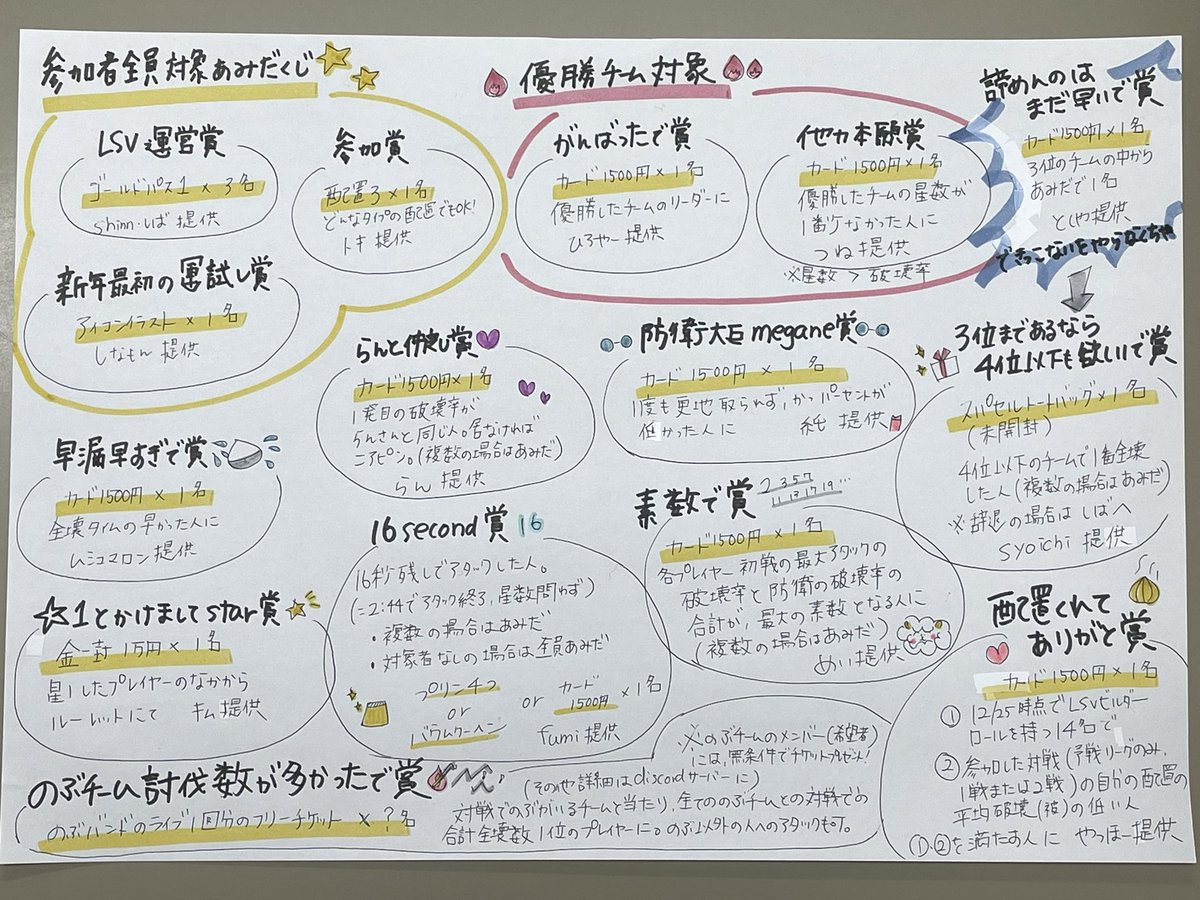 参加者全員対象あみだくじ
LSV運営賞
ゴールドパス1 × 3名
shinn・しば 提供
参加賞
配置3 × 1名
どんなタイプの配置でもOK!
トキ 提供
新年最初の運試し賞
アイコンイラスト × 1名
しなもん 提供
優勝チーム対象
がんばったで賞
カード1500円 × 1名
優勝したチームのリーダーに
ひろやー提供
他力本願賞
カード1500円 × 1名
優勝したチームの星数が
1番少なかった人に
つね提供
※星数 > 破壊率
諦めんのは
まだ早いで賞
カード1500円 × 1名
3位のチームの中から
あみだで1名
としや提供
できっこないをやらなくちゃ
らんと仲良し賞
カード1500円 × 1名
1発目の破壊率が
らんさんと同じ人。居なければ
ニアピン。(複数の場合はあみだ)
らん 提供
防衛大臣megane賞
カード1500円 × 1名
1度も更地取られず、かつパーセントが
低かった人に 純 提供
3位まであるなら
4位以下も欲しいで賞
スパセルトートバッグ × 1名
(未開封)
4位以下のチームで1番全壊
した人(複数の場合はあみだ)
※辞退の場合はしばへ
syoichi 提供
早漏早すぎで賞
カード1500円 × 1名
全壊タイムの早かった人に
ムシコマロン提供
16second賞 16
16秒残しでアタックした人。
(=2:44でアタック終了,星数問わず)
・複数の場合はあみだ
・対象者なしの場合は全員あみだ
プリン4つ
or
バウムクーヘン
or カード1500円 × 1名
fumi 提供
素数で賞 2.3.5.7
11.13.17.19...
カード1500円 × 1名
各プレイヤー初戦の最大アタックの
破壊率と防衛の破壊率の
合計が、最大の素数となる人に
(複数の場合はあみだ)
めい提供
☆1とかけましてstar賞
金一封 1万円 × 1名
星1したプレイヤーのなかから
ルーレットにて キム提供
配置くれて
ありがと賞
カード1500円 × 1名
① 12/25時点でLSVビルダー
ロールを持つ14名で
② 参加した対戦(予戦リーグのみ,
1戦または2戦)の自分の配置の
平均破壊(被)の低い人
①・②を満たす人に やっほー提供
のぶチーム討伐数が多かったで賞
のぶバンドのライブ1回分のフリーチケット × ?名
(その他詳細はdiscordサーバーに)
対戦でのぶがいるチームと当たり,全てののぶチームとの対戦での
合計全壊数1位のプレイヤーに。のぶ以外の人へのアタックも可。
※のぶチームのメンバー(希望者)
には,無条件でチケットプレゼント!